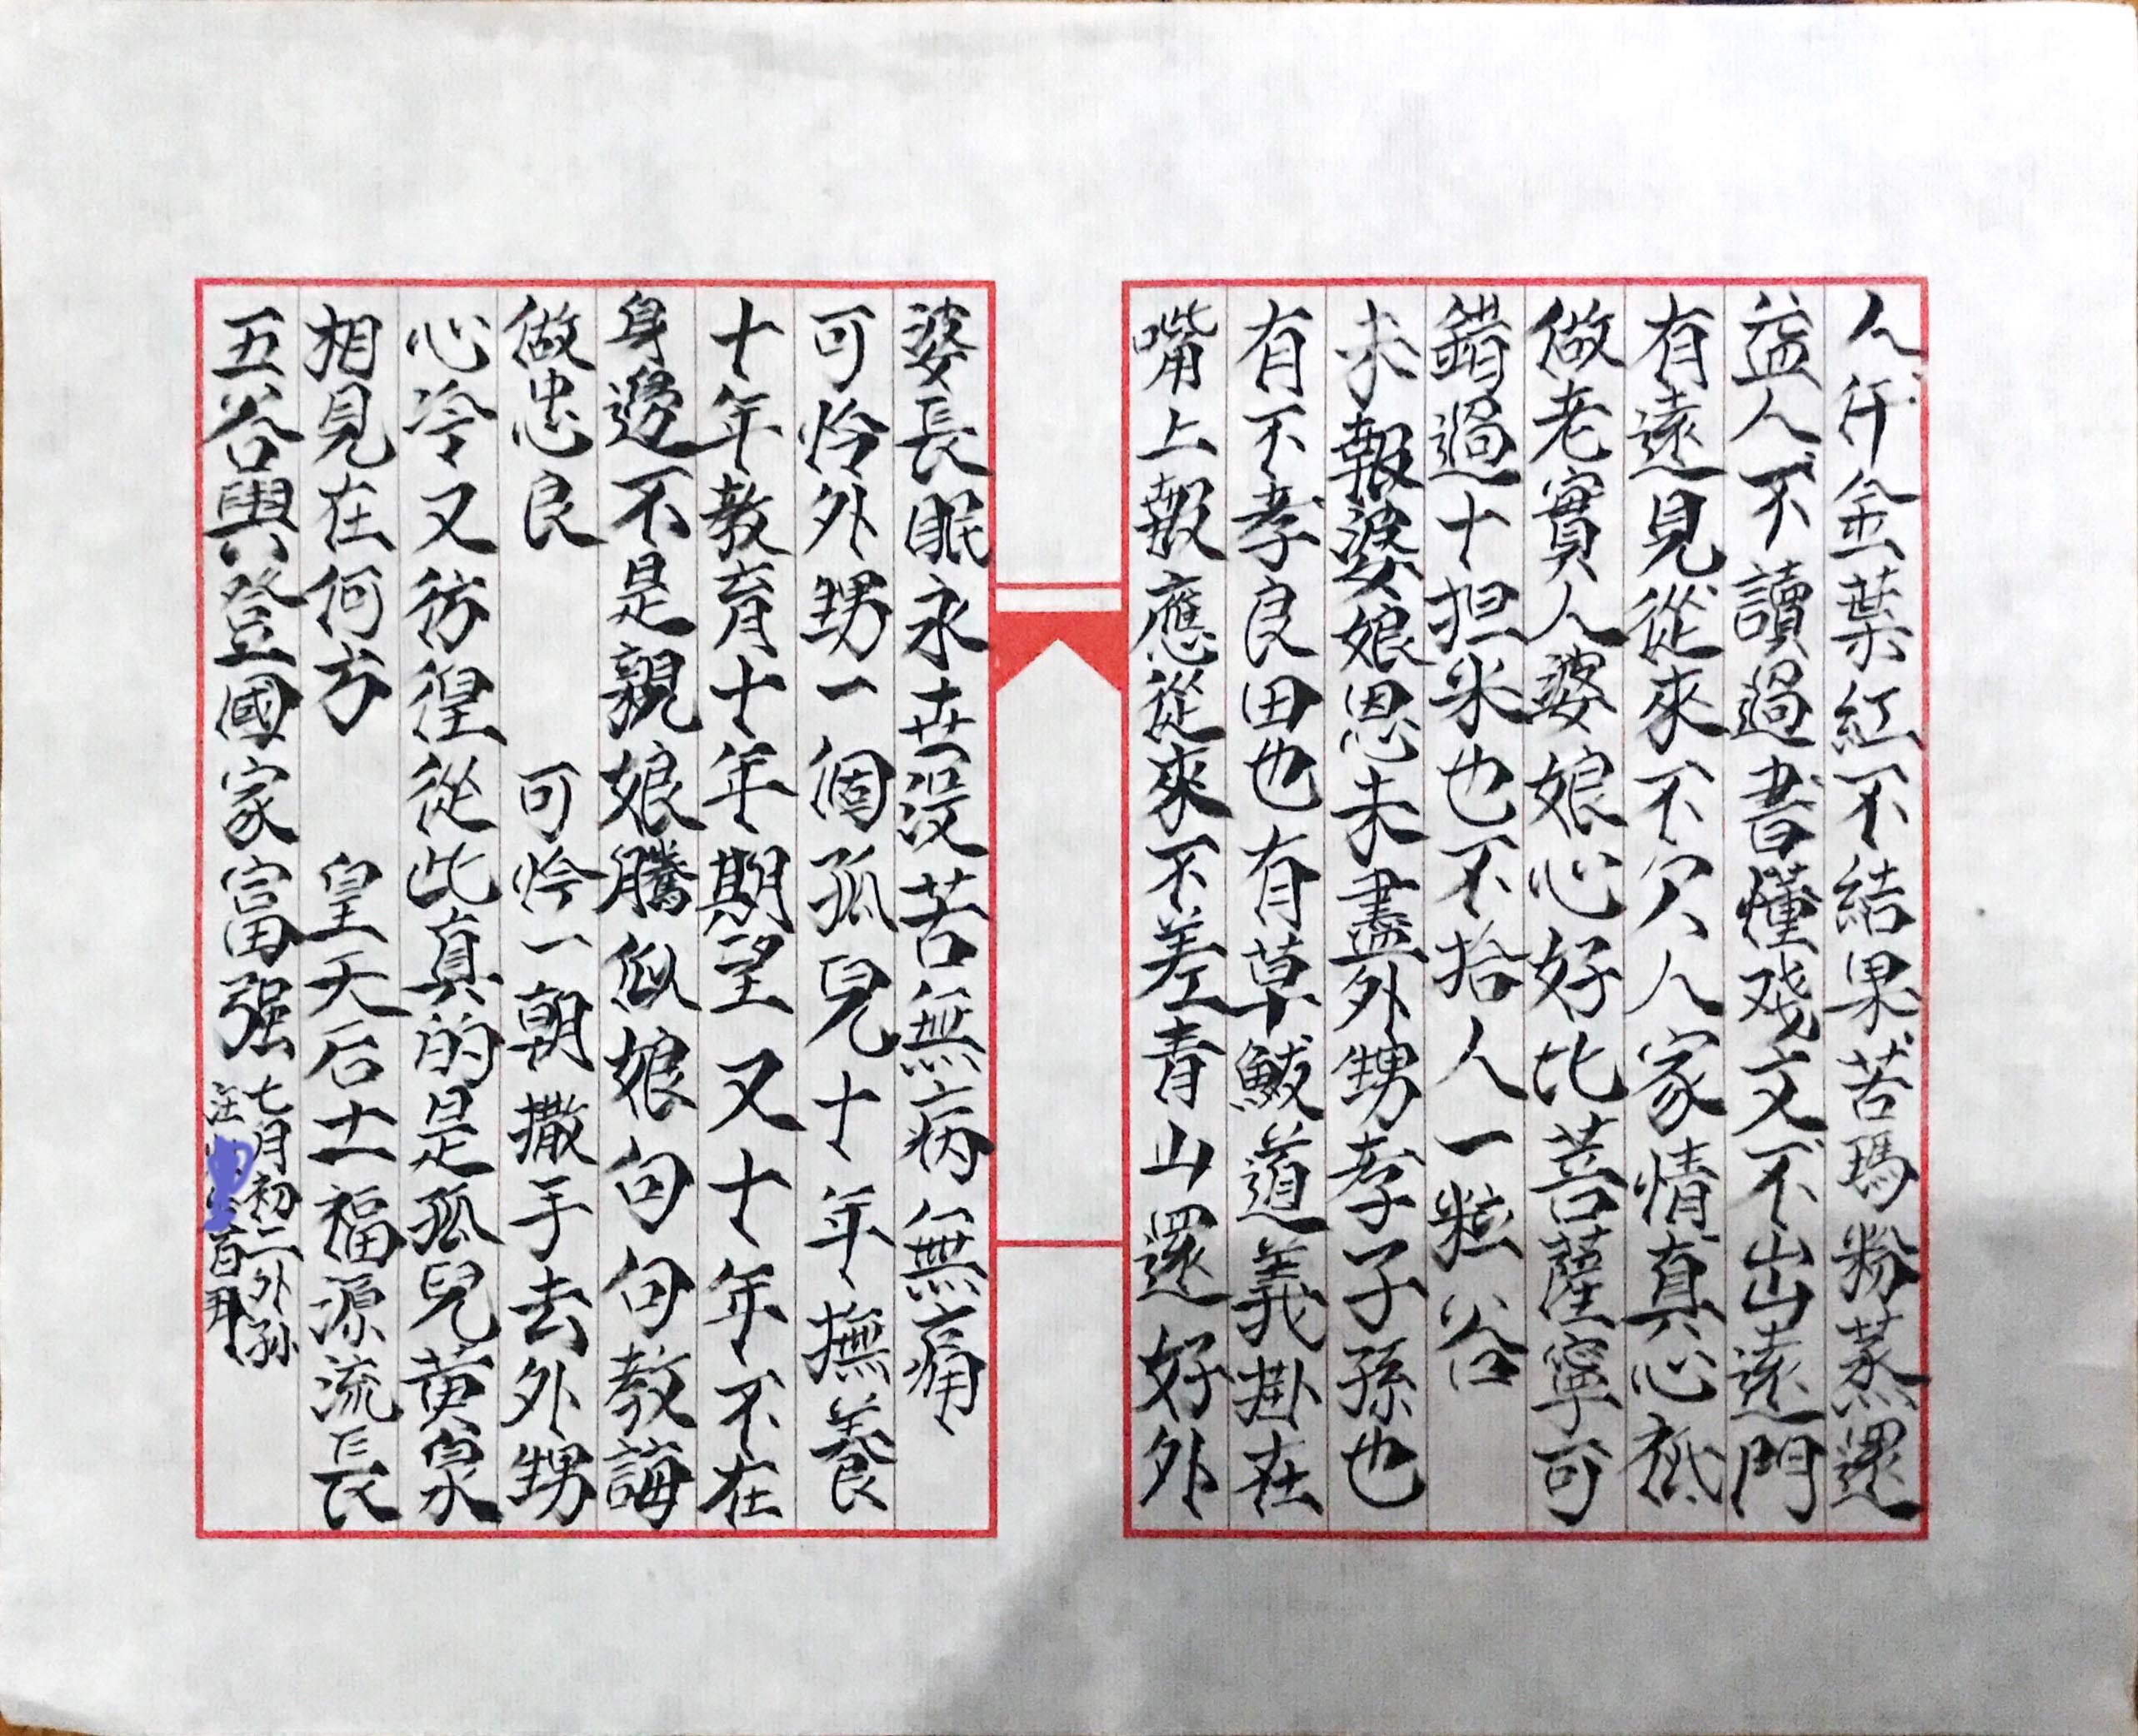 人仟金葉紅不結果苦瑪粉蒸還
益人不讀過書懂戏文不出遠門
有遠見從來不穴人家情真心祗
做老實人婆娘心好比菩薩寧可
錯過十担米也不拾人一粒谷
未報婆娘恩未盡外甥孝子孫也
有不孝良田也有草鮁道義掛在
嘴上報應從來不差青山還好外
婆長眠永世没苦無病無痛
可怜外甥一個孤兒十年撫養
十年教育十年期望又十年不在
身邊不是親娘騰似娘句句教誨
做忠良 可怜一朝撒手去外甥
心冷又彷徨從此真的是孤兒黄泉
相見在何方 皇天后土福源流長
五谷興登國家富强
七月初二外孙
百拜